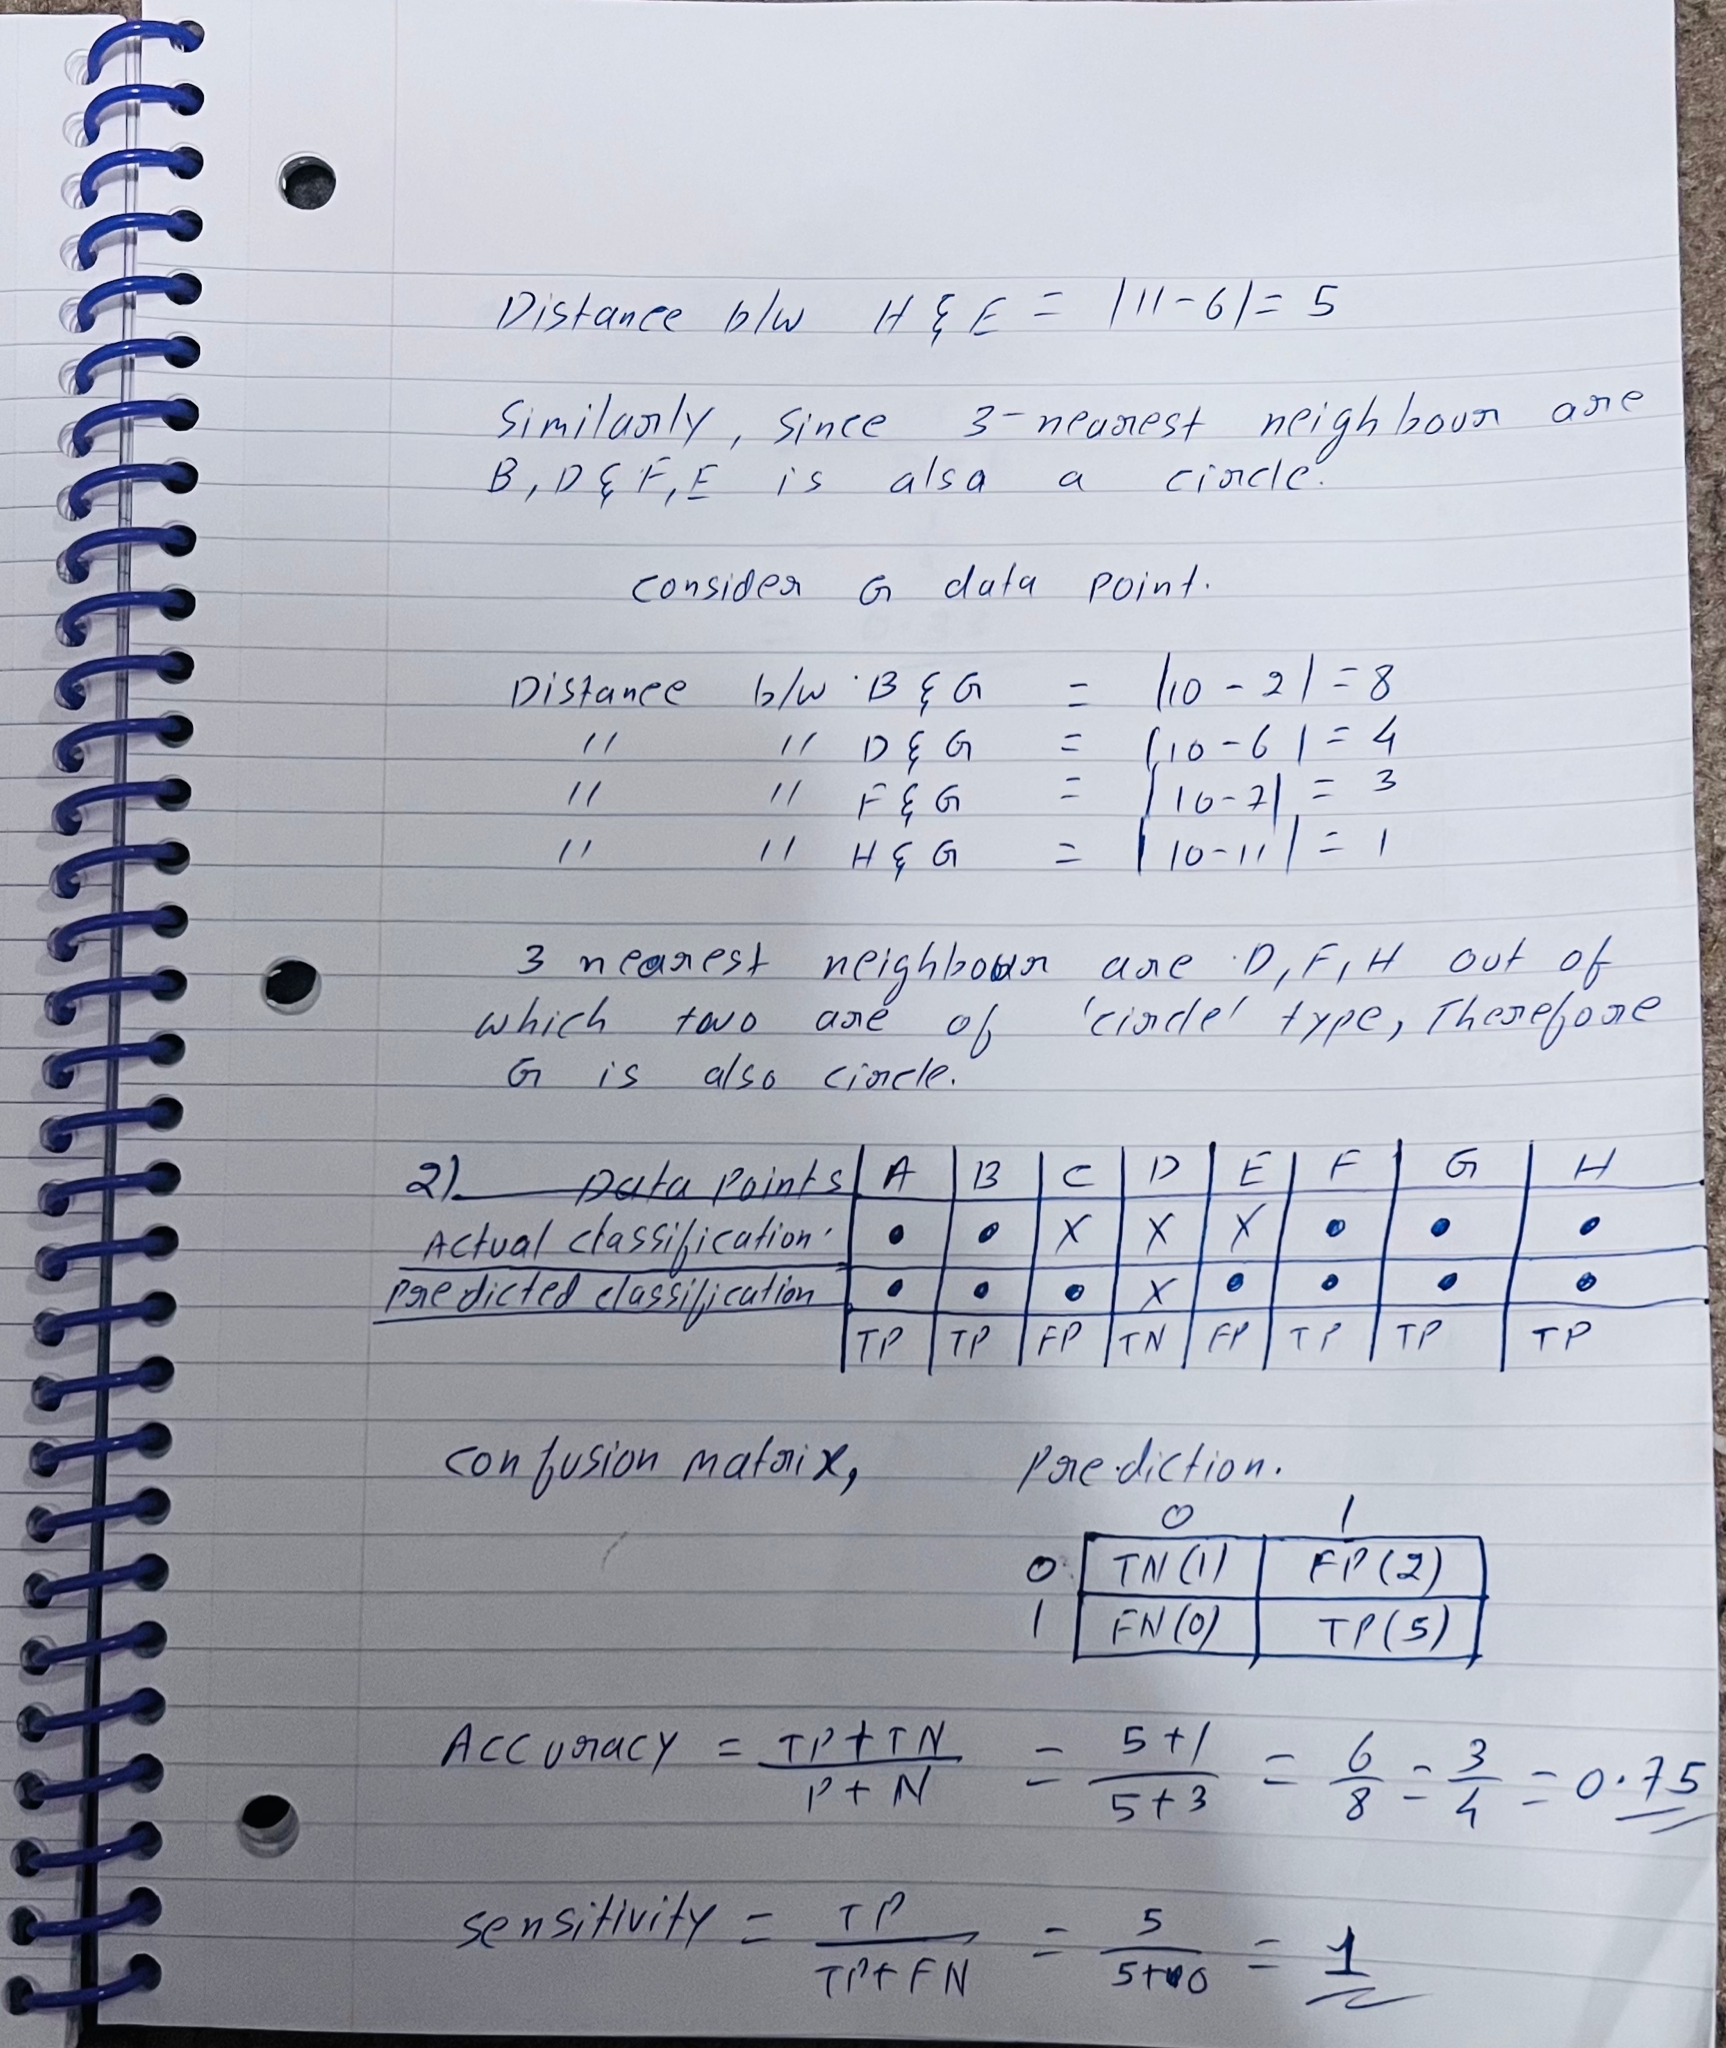 Distance b/w H & E = |11-6| = 5
Similarly, Since 3-nearest neighbour are
B, D & F, E is alsa a circle.
Consider G data point.
Distance b/w B & G = |10 - 2| = 8
" " D & G = |10-6| = 4
" " F & G = |10-7| = 3
" " H & G = |10-11| = 1
3 nearest neighbour are D, F, H out of
which two are of 'circle' type, Therefore
G is also circle.
2) Data Points A B C D E F G H
Actual classification • • X X X • • •
Predicted classification • • • X • • • •
TP TP FP TN FP TP TP TP
Confusion matrix, Prediction.
0 1
0 TN(1) FP(2)
1 FN(0) TP(5)
Accuracy = TP+TN / P+N = 5+1 / 5+3 = 6/8 = 3/4 = 0.75
Sensitivity = TP / TP+FN = 5 / 5+0 = 1